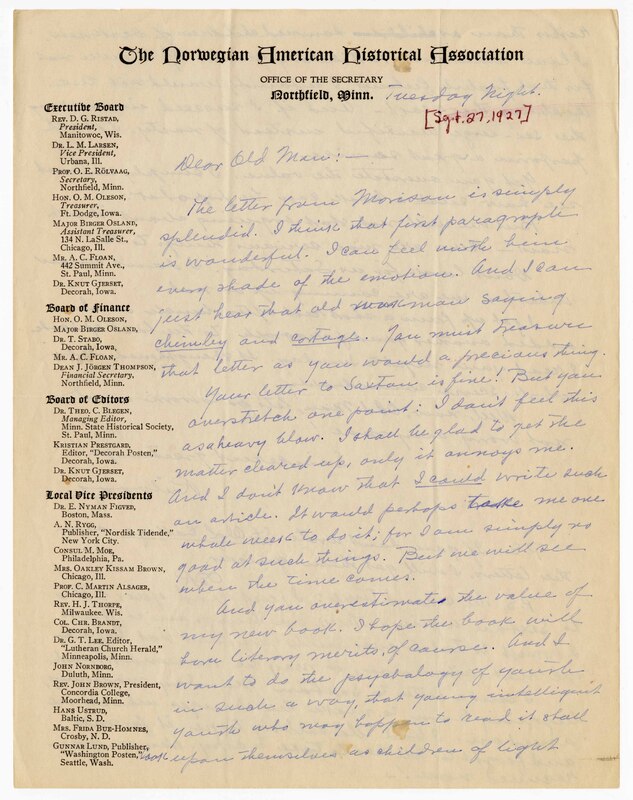 The Norwegian American Historical Association
OFFICE OF THE SECRETARY
Northfield, Minn.
Tuesday Night.
[Sept. 27, 1927]
Executive Board
REV. D. G. RISTAD,
President,
Manitowoc, Wis.
DR. L. M. LARSEN,
Vice President,
Urbana, Ill.
PROF. O. E. RÖLVAAG,
Secretary,
Northfield, Minn.
HON. O. M. OLESON,
Treasurer,
Ft. Dodge, Iowa.
MAJOR BIRGER OSLAND,
Assistant Treasurer,
134 N. LaSalle St.,
Chicago, Ill.
MR. A. C. FLOAN,
442 Summit Ave.,
St. Paul, Minn.
DR. KNUT GJERSET,
Decorah, Iowa.
Board of Finance
HON. O. M. OLESON,
MAJOR BIRGER OSLAND,
DR. T. STABO,
Decorah, Iowa,
MR. A. C. FLOAN,
DEAN J. JÖRGEN THOMPSON,
Financial Secretary,
Northfield, Minn.
Board of Editors
DR. THEO. C. BLEGEN,
Managing Editor,
Minn. State Historical Society,
St. Paul, Minn.
KRISTIAN PRESTGARD,
Editor, "Decorah Posten,"
Decorah, Iowa.
DR. KNUT GJERSET,
Decorah, Iowa.
Local Vice Presidents
DR. E. NYMAN FIGVED,
Boston, Mass.
A. N. RYGG,
Publisher, "Nordisk Tidende,"
New York City.
CONSUL M. MOE,
Philadelphia, Pa.
MRS. OAKLEY KISSAM BROWN,
Chicago, Ill.
PROF. C. MARTIN ALSAGER,
Chicago, Ill.
REV. H. J. THORPE,
Milwaukee, Wis.
COL. CHR. BRANDT,
Decorah, Iowa.
DR. G. T. LEE, Editor,
"Lutheran Church Herald,"
Minneapolis, Minn.
JOHN NORNBORG,
Duluth, Minn.
REV. JOHN BROWN, President,
Concordia College,
Moorhead, Minn.
HANS USTRUD,
Baltic, S. D.
MRS. FRIDA BUE-HOMNES,
Crosby, N. D.
GUNNAR LUND, Publisher,
"Washington Posten,"
Seattle, Wash.
Dear Old Man:—
The letter from Morison is simply
splendid. I think that first paragraph
is wonderful. I can feel with him
every shade of the emotion. And I can
just hear that old man saying
chimley and cortage. You must treasure
that letter as you would a precious thing.
Your letter to Saxton is fine! But you
overstretch one point: I don't feel this
as a heavy blow. I shall be glad to get the
matter cleared up, only it annoys me.
And I don't know that I could write such
an article. It would perhaps take me one
whole week to do it; for I am simply no
good at such things. But we will see
when the time comes.
And you overestimate the value of
my new book. I hope the book will
have literary merits, of course. And I
want to do the psychology of youth
in such a way, that young intelligent
youth who may happen to read it shall
look upon themselves as children of light